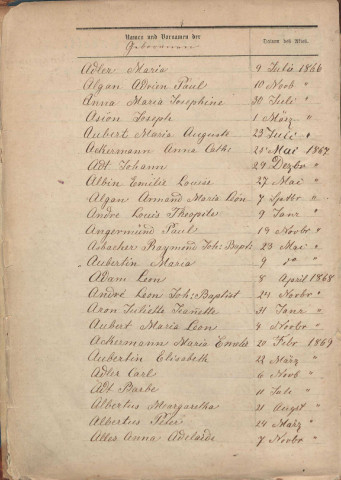 Namen und Vornamen der
Geborenen
Datum des Aktes.
Adler Maria 9 Julie 1866
Algan Adrien Paul 10 Novb "
Anna Maria Josephine 30 Juli "
Asion Joseph 1 März "
Aubert Maria Auguste 23 Juli "
Ackermann Anna Cath: 25 Mai 1867
Adt Johann 29 Dezbr "
Albin Emilie Louise 27 Mai "
Algan Armand Maria Léon 7 Sptbr "
Andre Louis Theopile 9 Janr "
Angermünd Paul 19 Novbr "
Asbacher Raymund Joh: Bapt: 23 Mai "
Aubertin Maria 9 do "
Adam Leon 8 April 1868
André Leon Joh: Baptist 24 Novbr "
Aron Juliette Jeanette 31 Janr "
Aubert Maria Leon 4 Novbr "
Ackermann Maria Emelie 20 Febr 1869
Aubertin Elisabeth 22 März "
Adler Carl 6 Novb "
Adt Barbe 11 Juli "
Albertus Margaretha 21 Augst "
Albertus Peter 24 März "
Alles Anna Adelaide 7 Novbr "